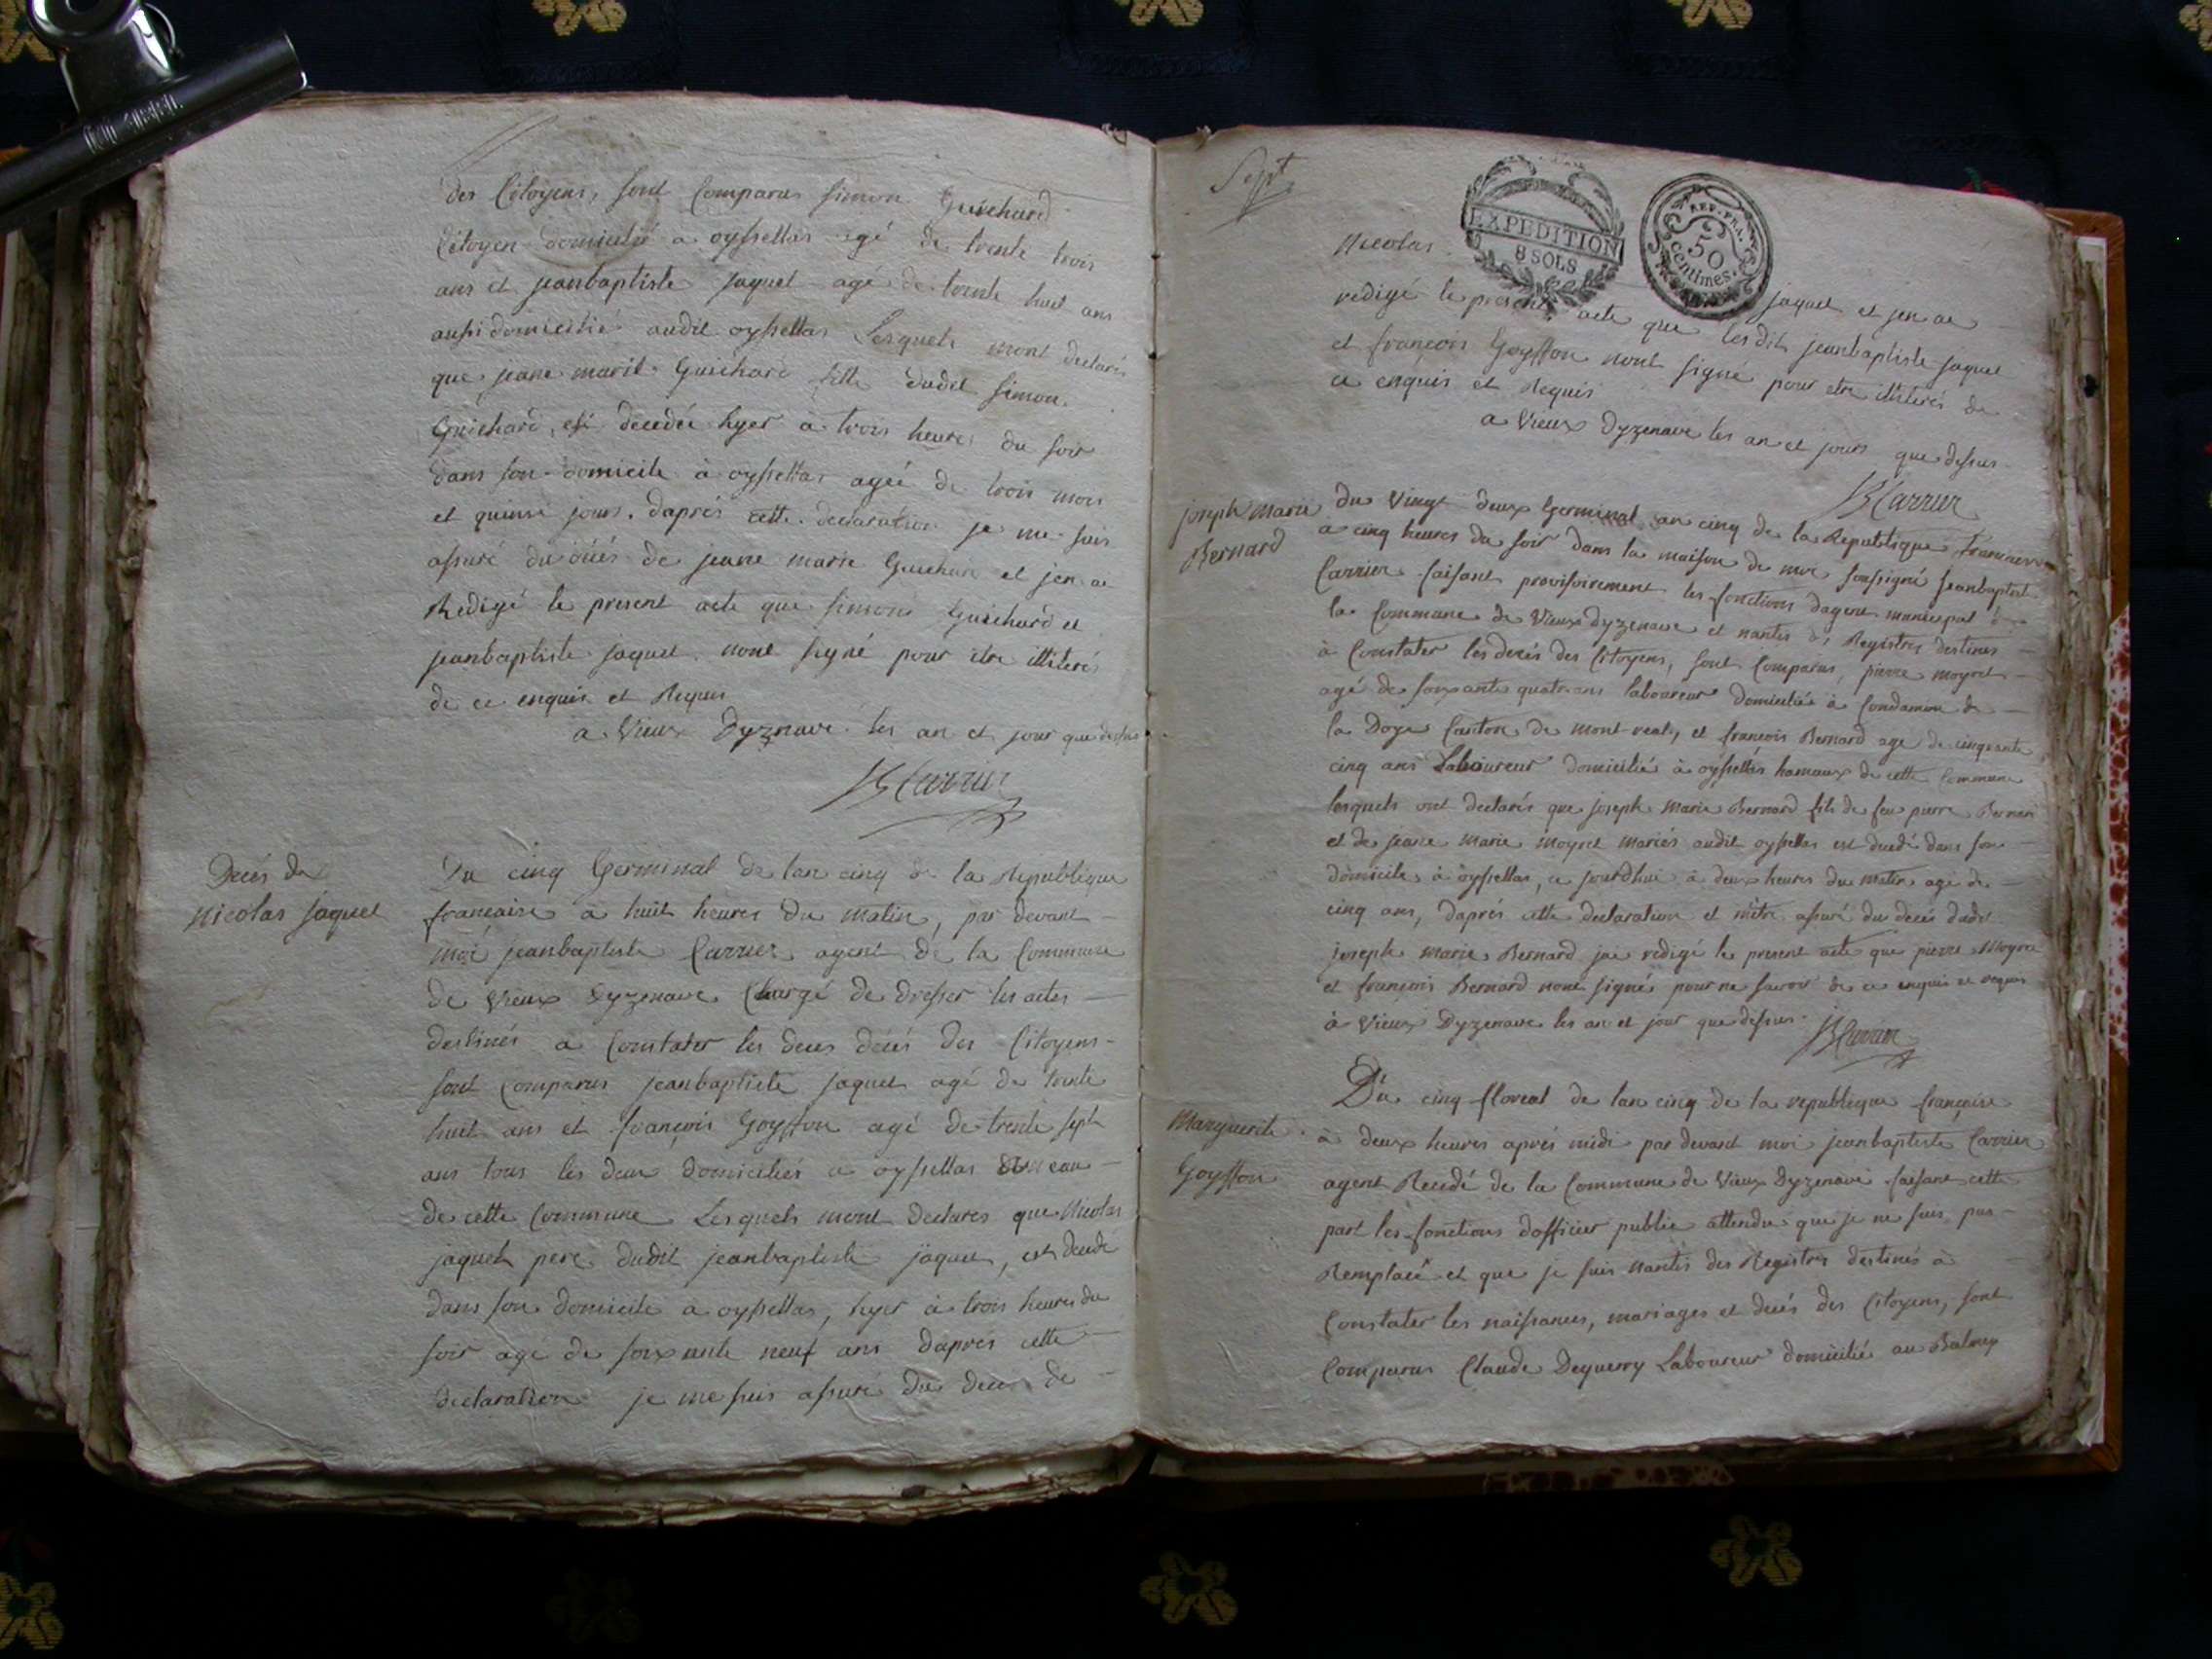 des Citoyens, sont Comparus simon Guichard
Citoyen domicilié a oyssellas agé de trente trois
ans et jeanbaptiste jaquet agé de trente huit ans
aussi domicilié audit oyssellas Lesquels mont declarés
que jeane marie Guichard fille dudit simon
Guichard, est decedée hyer à trois heures du soir
dans son domicile à oyssellas agée de trois mois
et quinse jours. daprés cette declaration je me suis
assuré du décés de jeane marie Guichard et jen ai
Redigé le present acte que simon Guichard et
jeanbaptiste jaquet nont signé pour etre illiterés
de ce enquis et Requis
a Vieux Dyznave les an et jour que dessus
JB Carrier
Decés de
nicolas jaquet
Du cinq Germinal de lan cinq de la Republique
francaise a huit heures du matin, par devant
moi jeanbaptiste Carrier agent de la Commune
de Vieux Dyzenave Chargé de dresser les actes
destinés a Constater les deces décés des Citoyens
sont comparus jeanbaptiste jaquet agé de trente
huit ans et françois Goyffon agé de trente sept
ans tous les deux domiciliés a oyssellas
de cette Commune Lesquels mont declarés que Nicolas
jaquet pere dudit jeanbaptiste jaquet, est decedé
dans son domicile a oyssellas, hyer à trois heures du
soir agé de soixante neuf ans daprés cette
declaration je me suis assuré du decés de
Sept
EXPEDITION
8 SOLS
REP. FRA.
50
Centimes.
Nicolas jaquet et jen ai
redigé le present acte que lesdits jeanbaptiste jaquet
et françois Goyffon nont signé pour etre illiterés de
ce enquis et Requis
a Vieux Dyzenave les an et jours que dessus
JB Carrier
joseph Marie
Bernard
du Vingt deux Germinal an cinq de la Republique francaise
a cinq heures du soir dans la maison de moi soussigné jeanbaptiste
Carrier faisant provisoirement les fonctions dagent municipal de
la Commune de Vieux Dyzenave et nantis des Registres destinés
à Constater les decés des Citoyens, sont Comparus, pierre moyret
agé de soixante quatre ans laboureur domicilié à Condamine de
la Doye Canton de mont real, et francois Bernard agé de cinquante
cinq ans Laboureur domicilié à oyssellas hamaux de cette Commune
lesquels ont declarés que joseph Marie Bernard fils de feu pierre Bernard
et de jeane Marie moyret mariés audit oyssellas est decedé dans son
domicile à oyssellas, ce jourdhui à deux heures du matin agé de
cinq ans, daprés cette declaration et mêtre assuré du decés dudit
joseph marie Bernard jai redigé le present acte que pierre Moyret
et françois Bernard nont signé pour ne savoir de ce enquis et requis
à Vieux Dyzenave les an et jour que dessus
JB Carrier
Marguerite
Goyffon
Du cinq floreal de lan cinq de la republique française
à deux heures aprés midi par devant moi jeanbaptiste Carrier
agent de la Commune de Vieux Dyzenave faisant cette
part les fonctions dofficier public attendu que je ne suis pas
Remplacé et que je suis nantis des Registres destinés à
Constater les naissances, mariages et decés des Citoyens, sont
Comparus Claude Deguerry Laboureur domicilié au Balmay